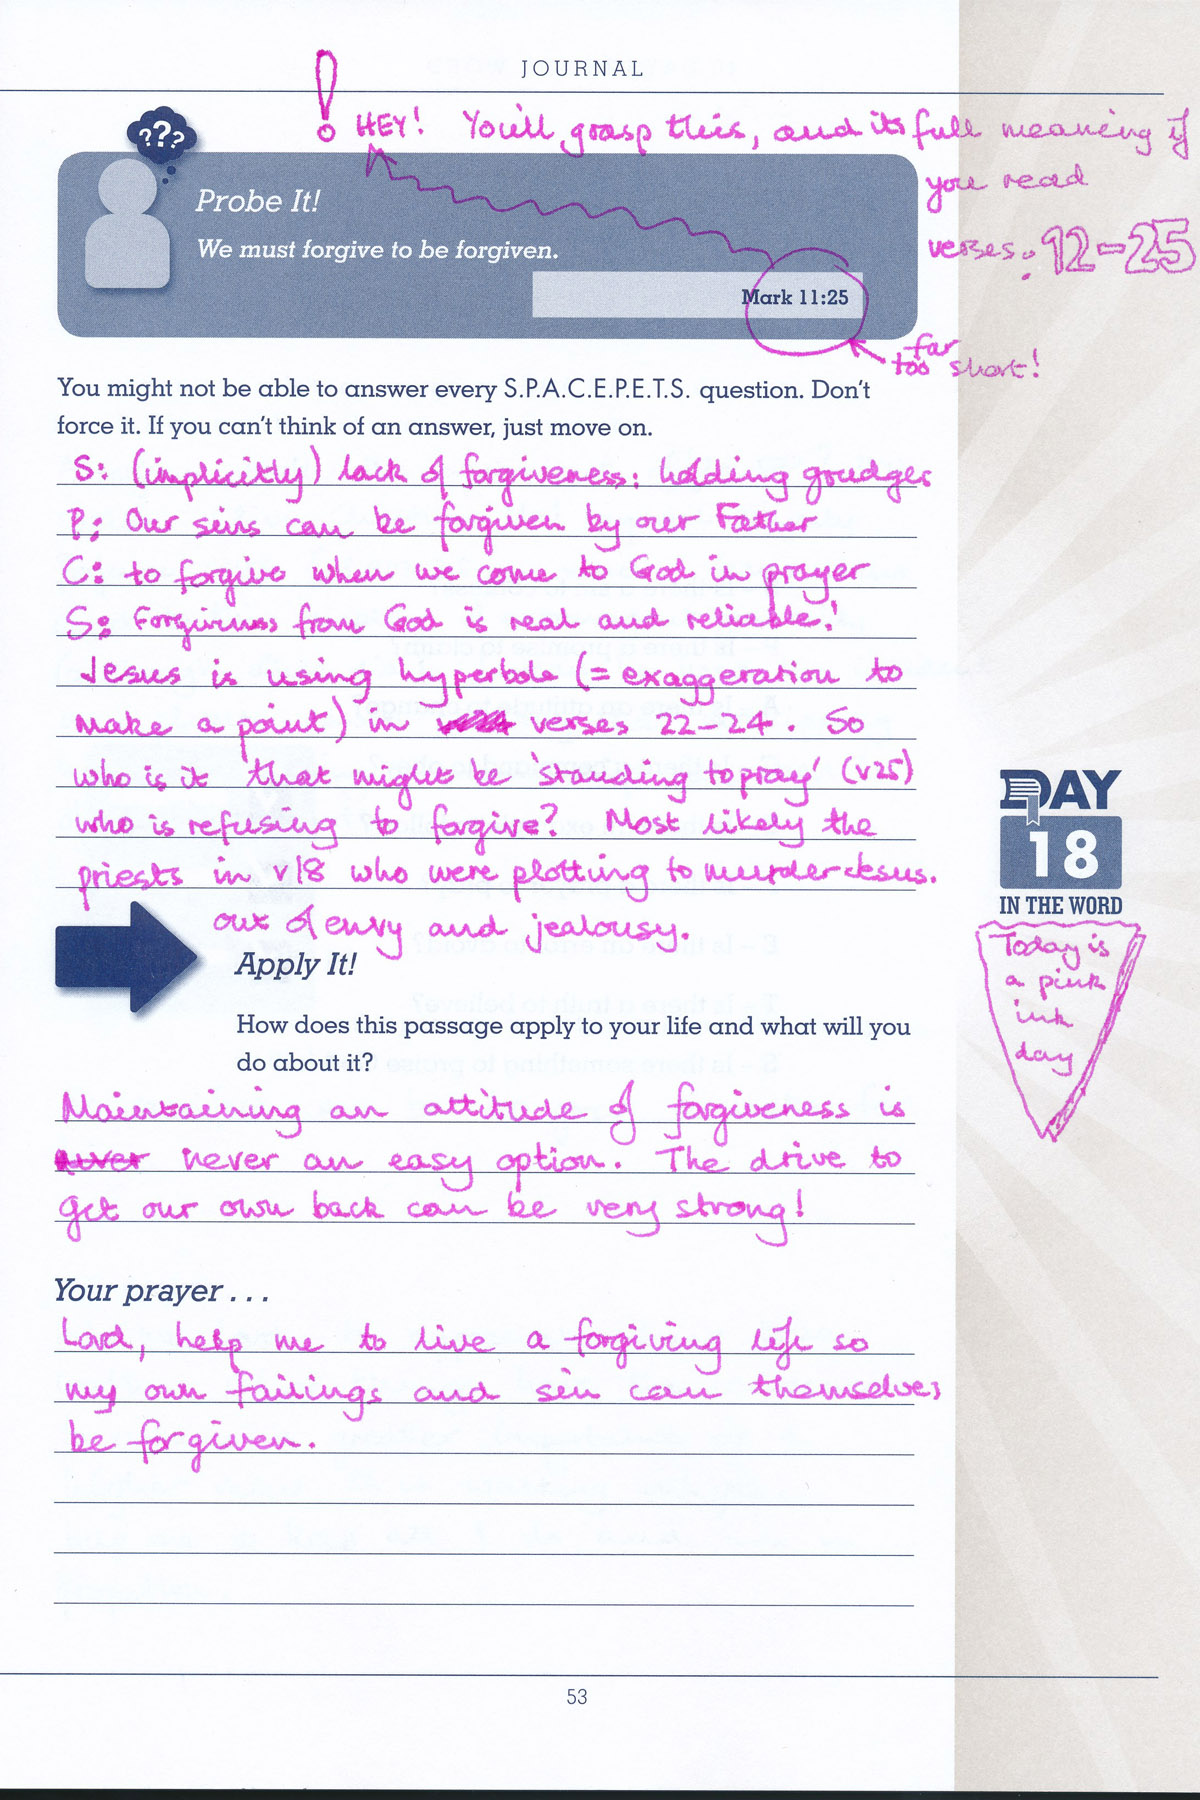 JOURNAL
! HEY! You'll grasp this, and its full meaning if
you read
verses: 12-25
???
Probe It!
We must forgive to be forgiven.
Mark 11:25
far
too short!
You might not be able to answer every S.P.A.C.E.P.E.T.S. question. Don't
force it. If you can't think of an answer, just move on.
S: (implicitly) lack of forgiveness: holding grudges
P: Our sins can be forgiven by our Father
C: to forgive when we come to God in prayer
S: Forgiveness from God is real and reliable!
Jesus is using hyperbole (= exaggeration to
make a point) in verses 22-24. So
who is it that might be 'standing to pray' (v25)
who is refusing to forgive? Most likely the
priests in v18 who were plotting to murder Jesus.
out of envy and jealousy.
Apply It!
How does this passage apply to your life and what will you
do about it?
Maintaining an attitude of forgiveness is
never an easy option. The drive to
get our own back can be very strong!
Your prayer . . .
Lord, help me to live a forgiving life so
my own failings and sin can themselves
be forgiven.
DAY
18
IN THE WORD
Today is
a pink
ink
day
53